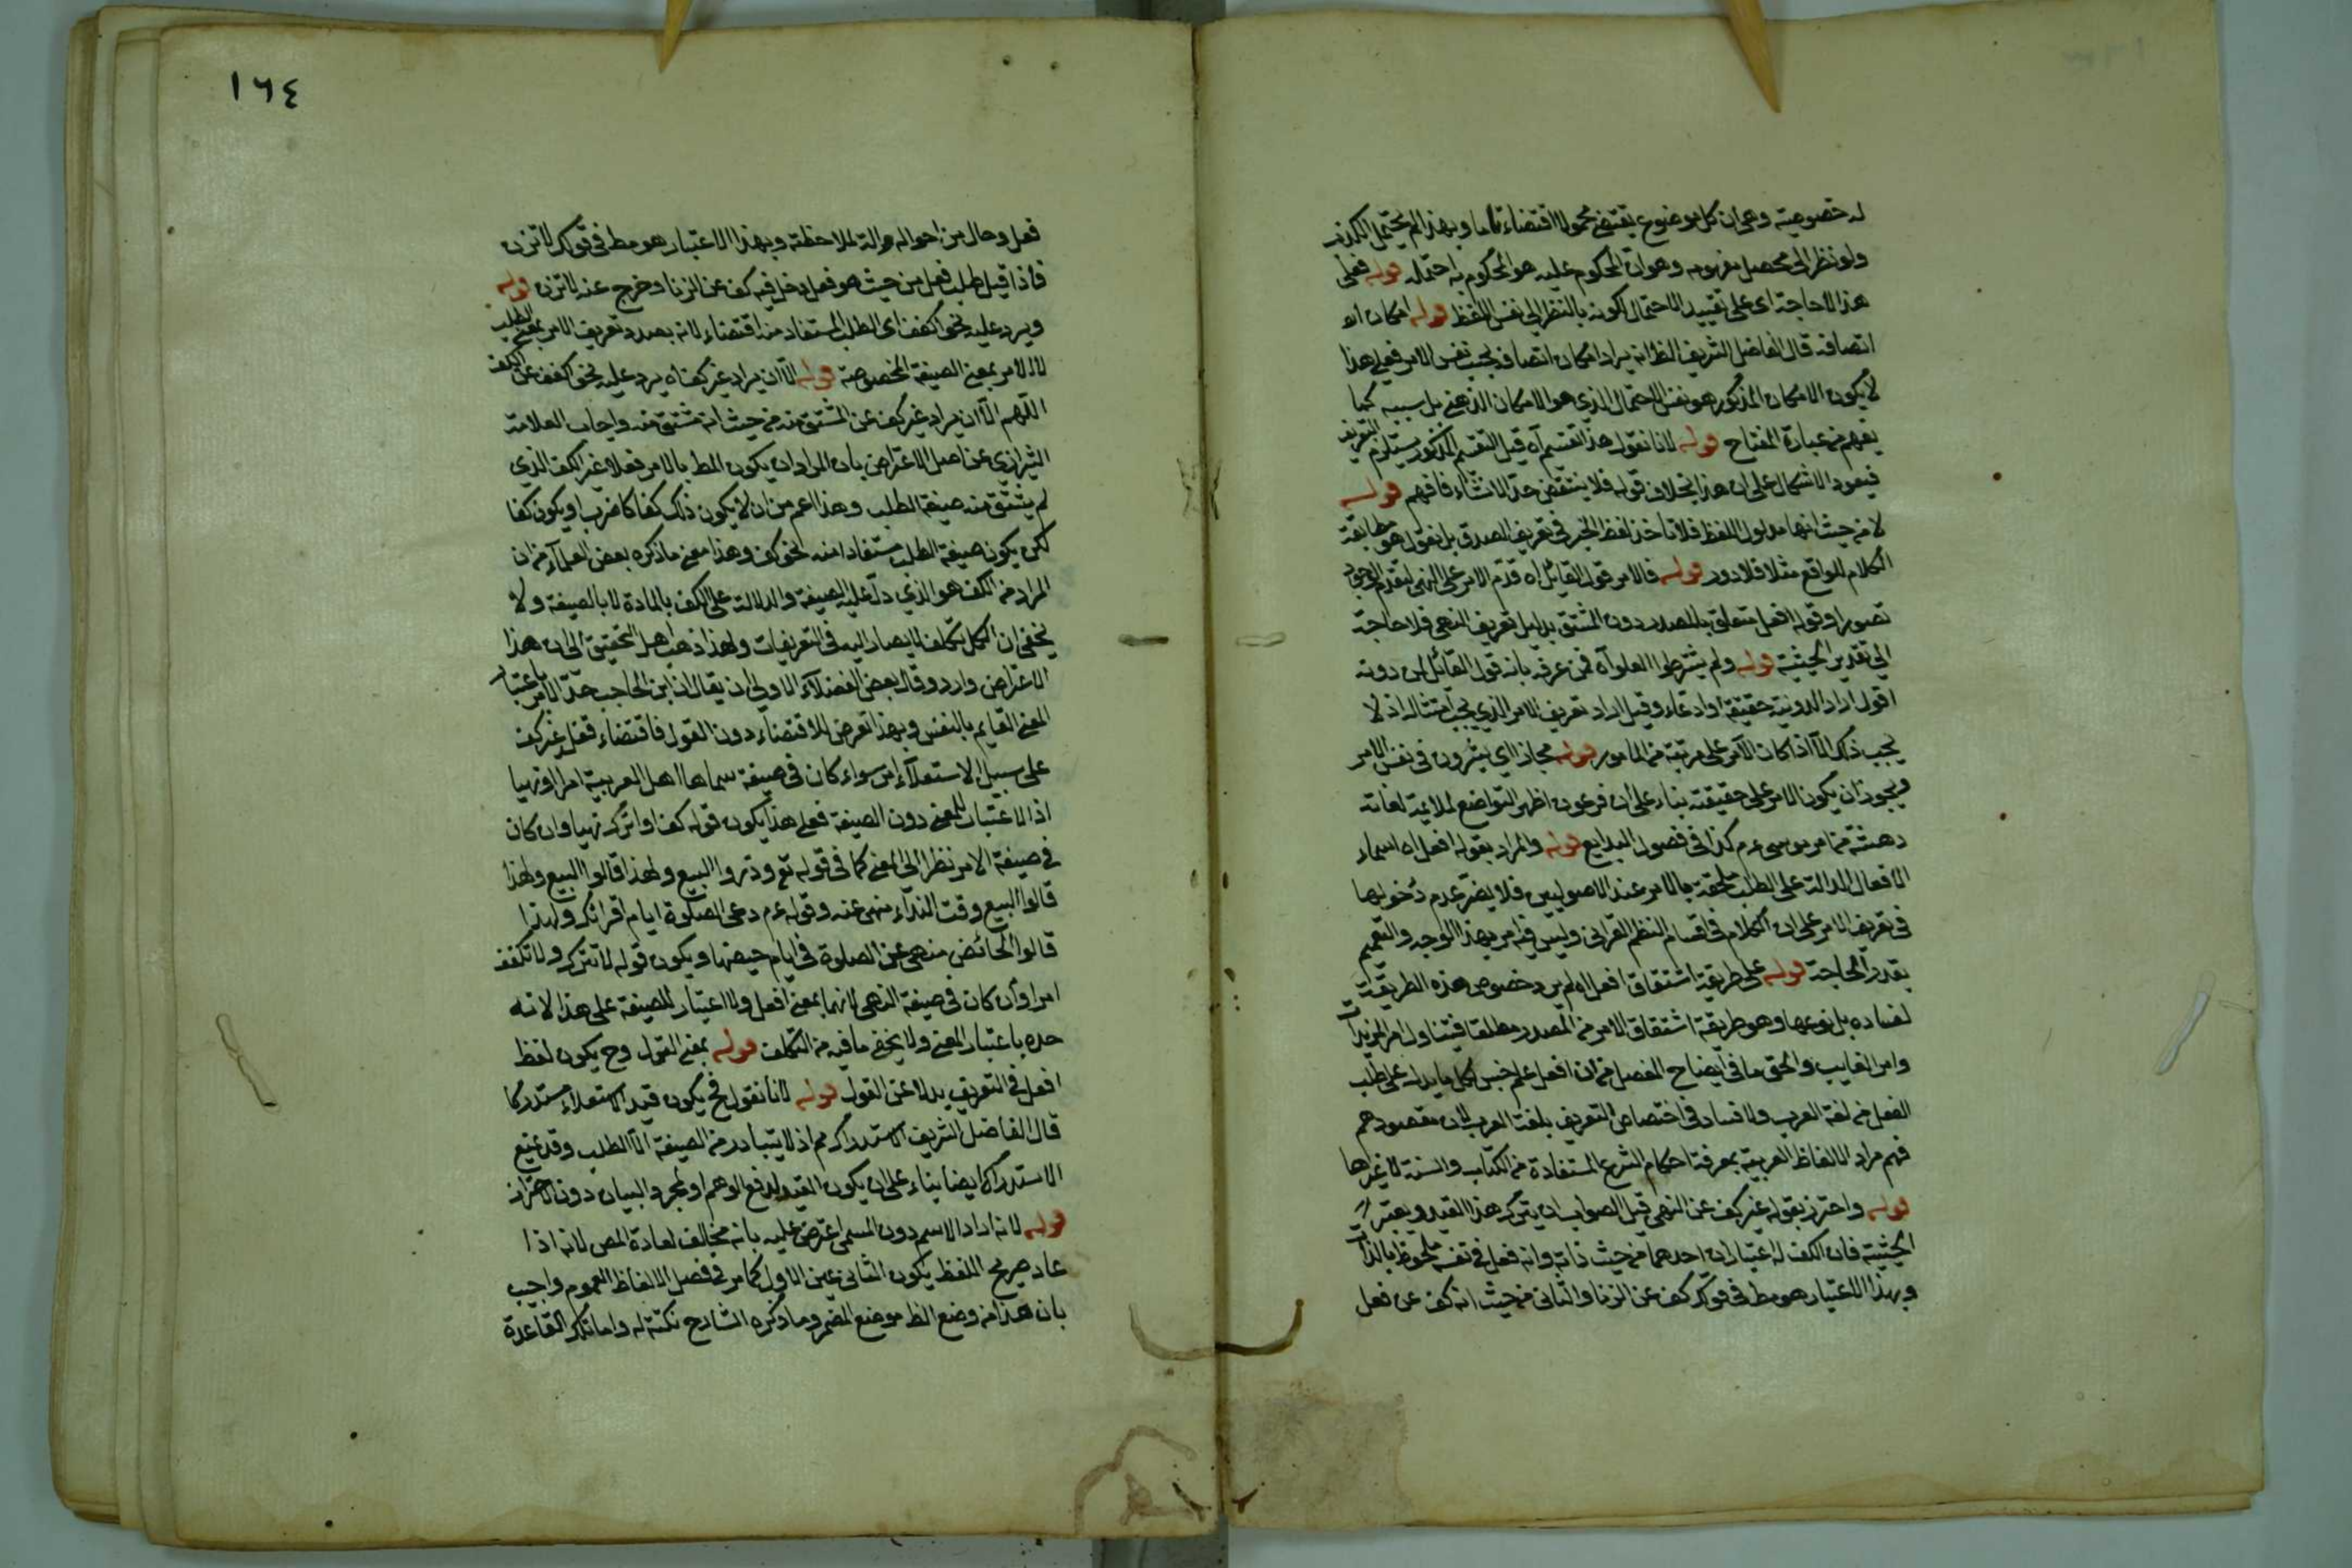 له خصوصيته وهي ان كل موضوع يقتضي محمولا اقتضاء تاما وبهذا لم يحتمل الكذب
ولو نظر الى محصل مفهومه وهو ان المحكوم عليه هو المحكوم به احتمله قوله فعلى
هذا لا حاجة اى على تقييد الاحتمال لكونه بالنظر الى نفس اللفظ قوله امكان اه
اتصافه قال الفاضل الشريف الظ انه يراد امكان اتصافه بحسب نفس الامر فعلى هذا
لا يكون الامكان المذكور هو نفس الاحتمال الذي هو الامكان الذهني بل سببه كما
يفهم من عبارة المفتاح قوله لانا نقول هذا تقسيم اه قيل التقسيم المذكور يستلزم التعريف
فيعود الاشكال على ان هذا بخلاف قوله فلا ينتقض حد الانشاء فافهم قوله
لا من حيث انها مدلول اللفظ فلا تأخذ لفظ الخبر فى تعريف الصدق بل نقول هو مطابقة
الكلام للواقع مثلا فلا دور قوله فالامر قول القائل اه قدم الامر على النهى لتقدم الوجود
تصورا وقوله افعل متعلق بالمصدر دون المشتق بدليل تعريف النهى فلا حاجة
الى تقدير الحيثية قوله ولم يشترطوا العلو اه فمن عرفه بانه قول القائل لمن دونه
اقول اراد الدونية حقيقة او ادعاء وقيل اراد تعريف الامر الذي يجب امتثاله اذ لا
يجب ذلك الا اذا كان الآمر على مرتبة من المامور قوله مجاز اي تشيرون فى نفس الامر
ويجوز ان يكون الامر على حقيقته بناء على ان فرعون اظهر التواضع لملائه لغاية
دهشته من امر موسى عم كذا فى فصول البدايع قوله والمراد بقوله افعل اه اسماء
الافعال الدالة على الطلب ملحقة بالامر عند الاصوليين فلا يضر عدم دخولها
فى تعريف الامر على ان الكلام فى اقسام النظم القرانى وليس فيه امر بهذا الوجه والتعميم
بقدر الحاجة قوله على طريقة اشتقاق افعل اه لم يرد خصوص هذه الطريقة
لفساده بل نوعها وهو طريقة اشتقاق الامر من المصدر مطلقا فيتناول امر المزيدات
وامر الغايب والحق ما فى ايضاح المفصل من ان افعل علم جنس لكل ما يدل على طلب
الفعل من لغة العرب ولا فساد فى اختصاص التعريف بلغة العرب لان مقصودهم
فهم مراد الالفاظ العربية بمعرفة احكام الشرع المستفادة من الكتاب والسنة لا غيرها
قوله واحترز بقوله غير كف عن النهى قيل الصواب ان يترك هذا القيد ويعتبر
الحيثية فان الكف له اعتباران احدهما من حيث ذاته وانه فعل فى نفسه ملحوظ بالذات
وبهذا الاعتبار هو مط فى قولك كف عن الزنا والثانى من حيث انه كف عن فعل
١٦٤
فعل وحال من احواله والة لملاحظته وبهذا الاعتبار هو مط فى قولك لا تزن
فاذا قيل طلب فعل من حيث هو فعل دخل فيه كف عن الزنا وخرج عنه لا تزن قوله
ويرد عليه نحو اكفف اى الطلب المستفاد منه اقتضاء لانه بصدد تعريف الامر بمعنى الطلب
لا الامر بمعنى الصيغة المخصوصة قوله الا ان يراد غير كف اه يرد عليه نحو اكفف عن الكف
اللهم الا ان يراد غير كف عن المشتق منه من حيث انه مشتق منه واجاب العلامة
الشيرازي عن اصل الاعتراض بان المراد ان يكون المط بالامر فعلا غير الكف الذي
لم يشتق منه صيغة الطلب وهذا اعم من ان لا يكون ذلك كفا كاضرب او يكون كفا
لكن يكون صيغة الطلب مستفادا منه نحو كف وهذا معنى ما ذكره بعض العلماء من ان
المراد من الكف هو الذي دل عليه الصيغة والدلالة على الكف بالمادة لا بالصيغة ولا
يخفى ان الكل تكلف لا يصار اليه فى التعريفات ولهذا ذهب اهل التحقيق الى ان هذا
الاعتراض وارد وقال بعض الفضلاء الاولى ان يقال ان ابن الحاجب حد الامر باعتبار
المعنى القايم بالنفس وبهذا تعرض للاقتضاء دون القول فاقتضاء فعل غير كف
على سبيل الاستعلاء امر سواء كان فى صيغة سماها اهل العربية امرا او نهيا
اذ الاعتبار للمعنى دون الصيغة فعلى هذا يكون قوله كف او اترك نهيا وان كان
فى صيغة الامر نظرا الى المعنى كما فى قوله تع وذروا البيع ولهذا قالوا البيع ولهذا
قالوا البيع وقت النداء منهى عنه وقوله عم دعى الصلوة ايام اقرائك ولهذا
قالوا الحائض منهى عن الصلوة فى ايام حيضها ويكون قوله لا تترك ولا تكفف
امرا وان كان فى صيغة النهى لانهما بمعنى افعل ولا اعتبار للصيغة على هذا لانه
حده باعتبار المعنى ولا يخفى ما فيه من التكلف قوله بمعنى القول وح يكون لفظ
افعل فى التعريف بدلا عن القول قوله لانا نقول فح يكون قيد الاستعلاء مستدركا
قال الفاضل الشريف الاستدراك مم اذ لا يتبادر من الصيغة الا الطلب وقد يمنع
الاستدراك ايضا بناء على ان يكون القيد لدفع الوهم او لمجرد البيان دون الاحتراز
قوله لانه اراد الاسم دون المسمى اعترض عليه بانه مخالف لعادة المص لانه اذا
عاد صريح اللفظ يكون الثانى عين الاول كما مر فى فصل الالفاظ العموم واجيب
بان هذا من وضع الظ موضع المضمر وما ذكره الشارح نكتة له واما تلك القاعدة